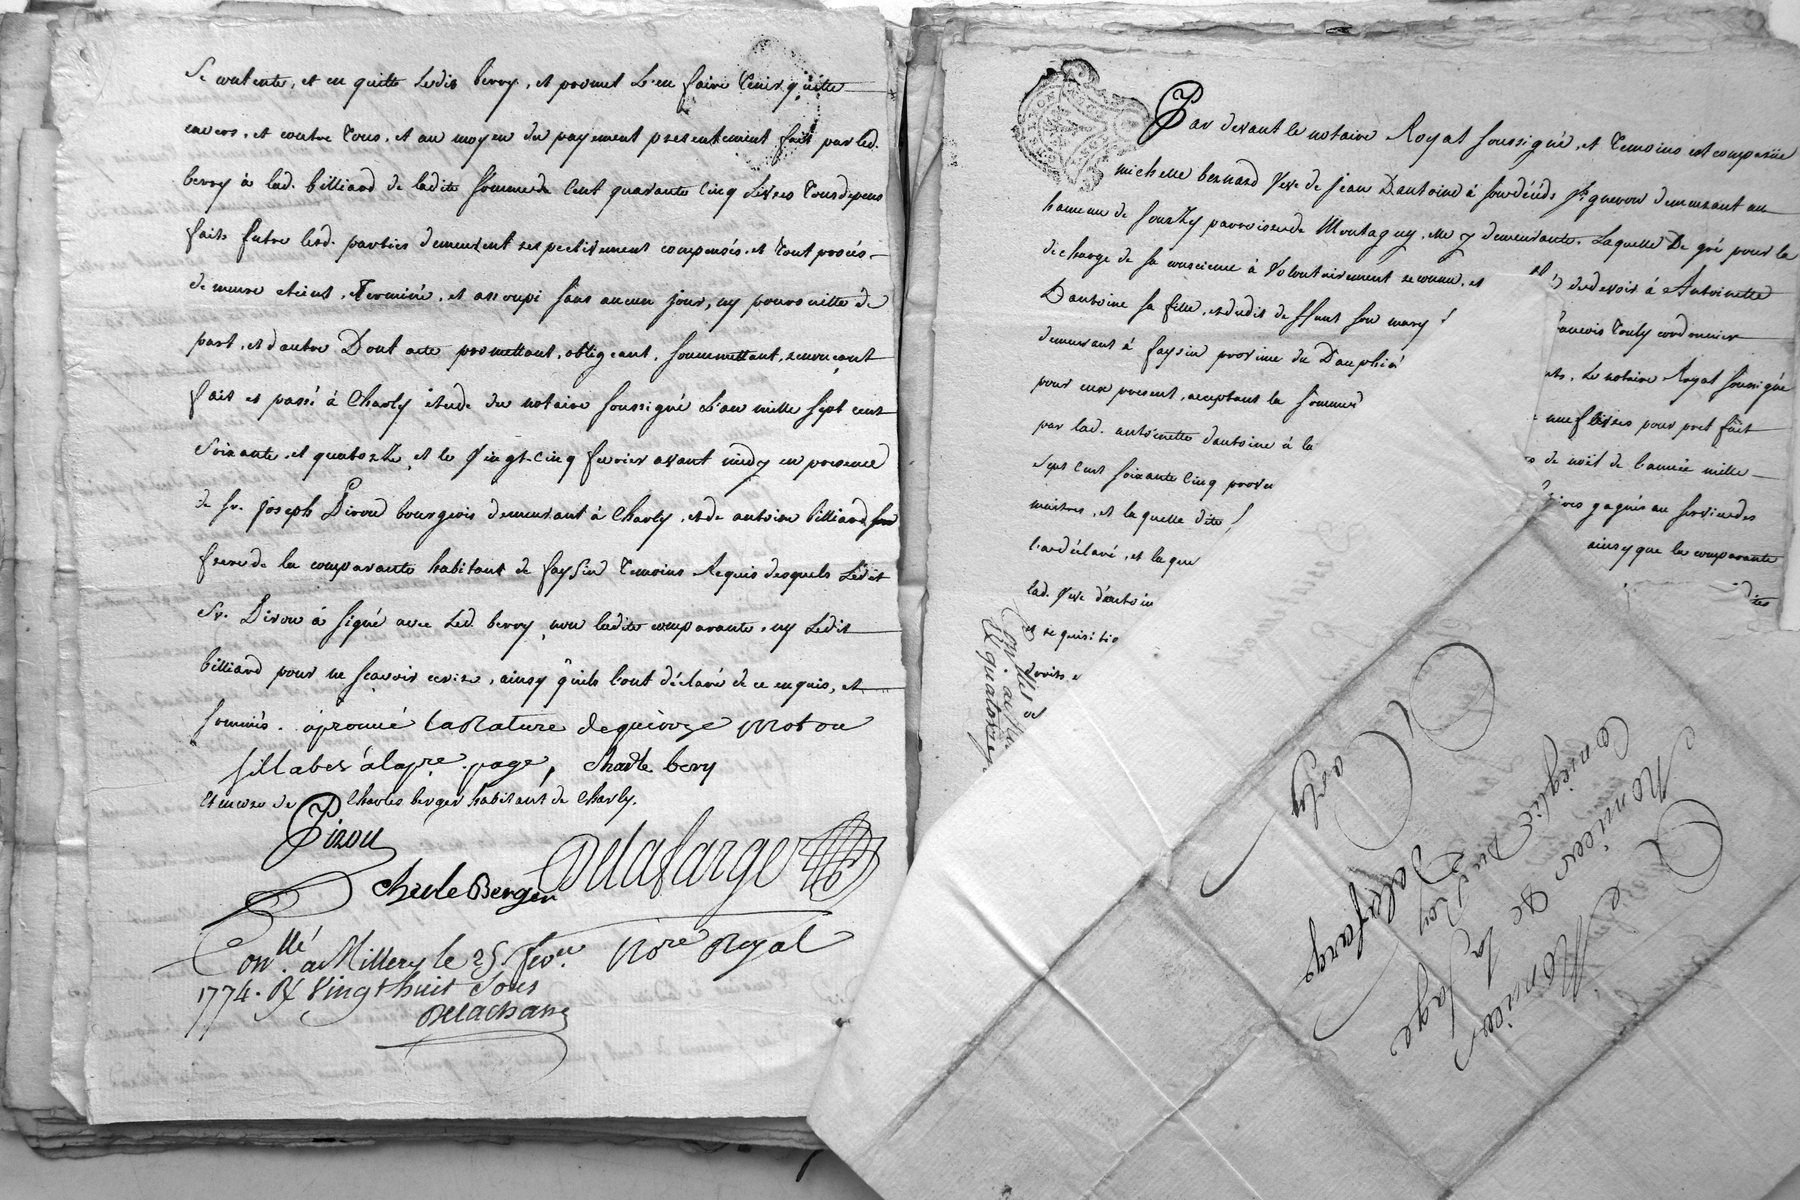 Se contente, et en quitte Ledit berry, et promet L'en faire Tenir quitte
envers, et contre Tous, et au moyen du payement presentement fait par led.
berry à lad. billiard de ladite Somme de Cent quarante Cinq Livres Tous depens
faits Entre lesd. parties demeurent respectivement compensés, et tout procés
demeure eteint, et terminé, et assoupi sans aucun jour, ny poursuitte de
part, et d'autre Dont acte promettant, obligeant, soummettant, renonçant
fait et passé à Charly étude du notaire soussigné L'an mille sept cent
soixante, et quatorze, et le Vingt-Cinq fevrier avant midy en presence
de sr. joseph Pirou bourgeois demeurant à Charly, et de antoine billiard
frere de la comparante habitant de faysin Temoins Requis desquels Ledit
sr. Pirou à signé avec Led. berry, non ladite comparante, ny Ledit
billiard pour ne scavoir ecrire, ainsy qu'ils l'ont déclaré de ce enquis, et
sommés. aprouvé la Rature de quinze mot ou
sillabes à la pre. page, Charle bery
Encore de Charles berger habitant de Charly.
Pirou
Charle Berger Delafarge
Nore Royal
Conllé. a Millery le 25. fevr.
1774. Rx Vingt huit Sous
Delachan
Par devant le notaire Royal soussigné, et Temoins est comparüe
michelle bernard Veve de jean Dantoine à demeurant au
hameau de sourzy parroisse de Montagny, elle y demeurante, Laquelle De gré pour la
décharge de sa conscience à Volontairement reconnu, et
de devoir à Antoinette
Dantoine sa fille, et dudit deffunt son mary
Touly cordonnier
demeurant à faysin province du Dauphiné
Le notaire Royal soussigné
pour eux present, acceptant la somme
livres pour pret fait
par lad. antoinette dantoine à la
de noël de l'année mille
sept cent soixante cinq
gagnés au service des
maitres, et laquelle dite
ainsy que la comparante
l'a déclaré, et la que
lad. Veve d'antoin
requisitio
droits
A Monsieur
Monsieur De la farge
Conseiglié du Roy
A Charly
Delafarge